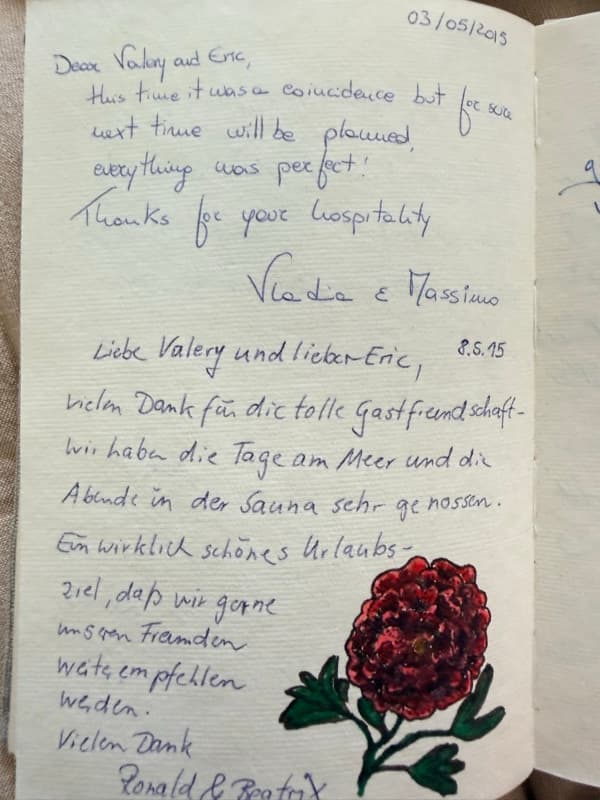 03/05/2015
Dear Valery and Eric,
this time it was a coincidence but for sure
next time will be planned,
everything was perfect!
Thanks for your hospitality
Vladia & Massimo
Liebe Valery und lieber Eric, 8.5.15
vielen Dank für die tolle Gastfreundschaft-
wir haben die Tage am Meer und die
Abende in der Sauna sehr genossen.
Ein wirklich schönes Urlaubs-
ziel, daß wir gerne
unseren Freunden
weiterempfehlen
werden.
Vielen Dank
Ronald & Beatrix